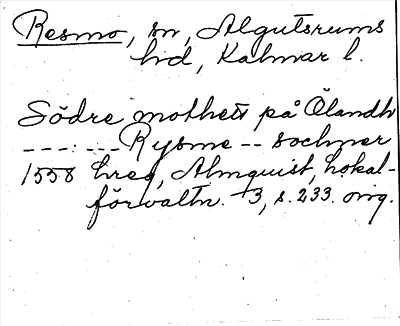 Resmo, sn, Algutsrums
hd, Kalmar l.
Södre mothett på Ölandh
---:--- Rysme -- sochner
1558 hreg, Almquist, Lokal-
förvaltn. 3, s. 233. orig.